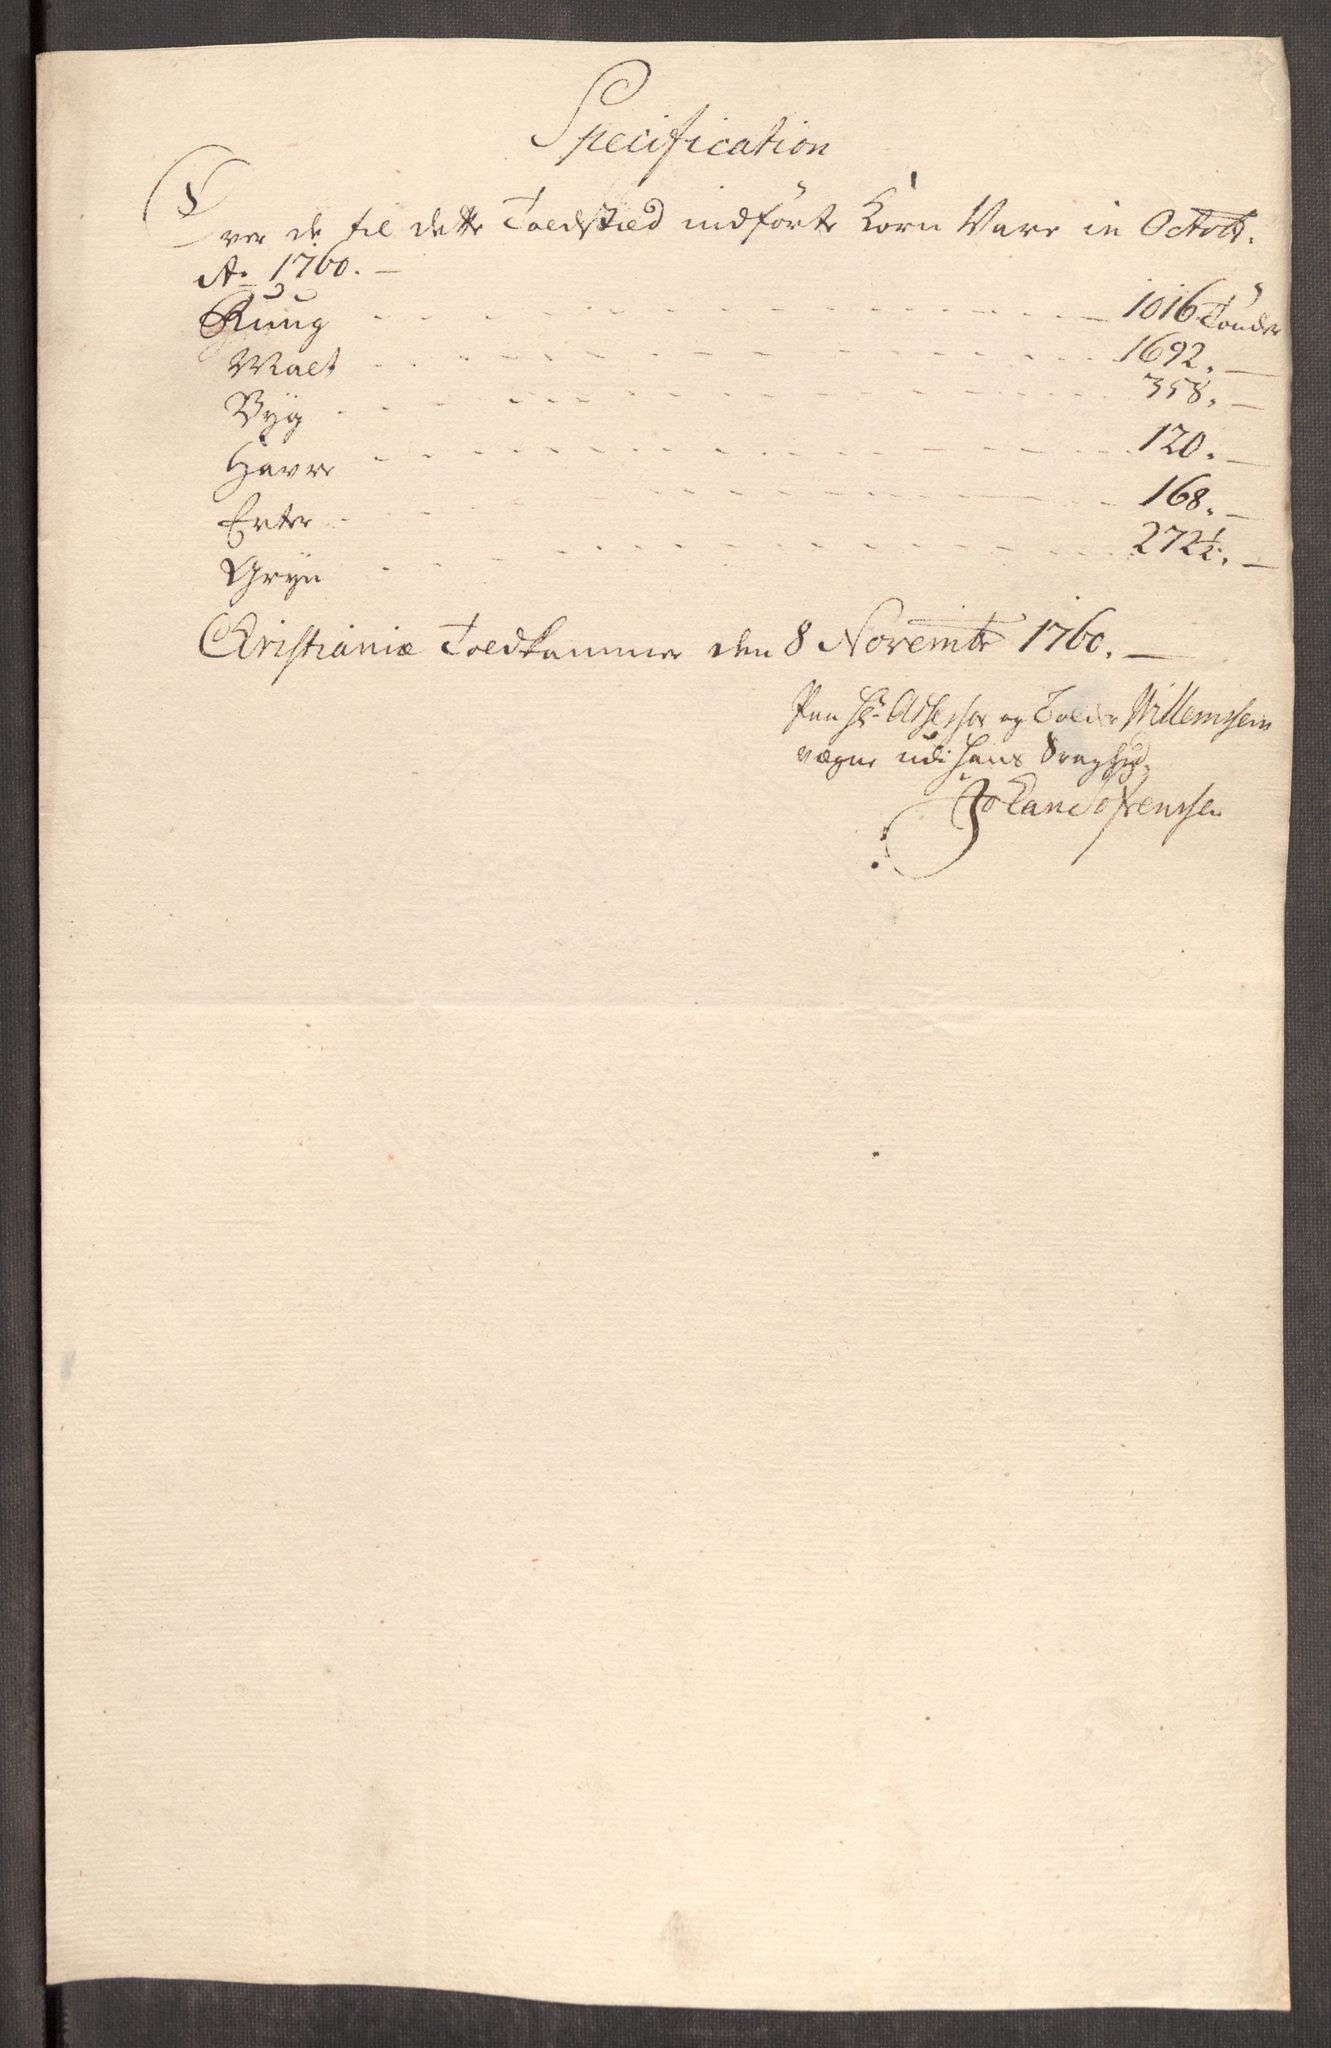 Specification
Over de til dette Toldsted indførte Korn Vare in Octobr.
Ao 1760. —
Ruug 1016 Tønder
Malt 1692. —
Byg 358. —
Havre 120. —
Erter 168. —
Gryn 272½. —
Christianiæ Toldkammer den 8 Novembr 1760. —
Paa Hr. Assessor og Tolder Willemsens
vægne udi hans Svaghed.
Johan Sørenssen